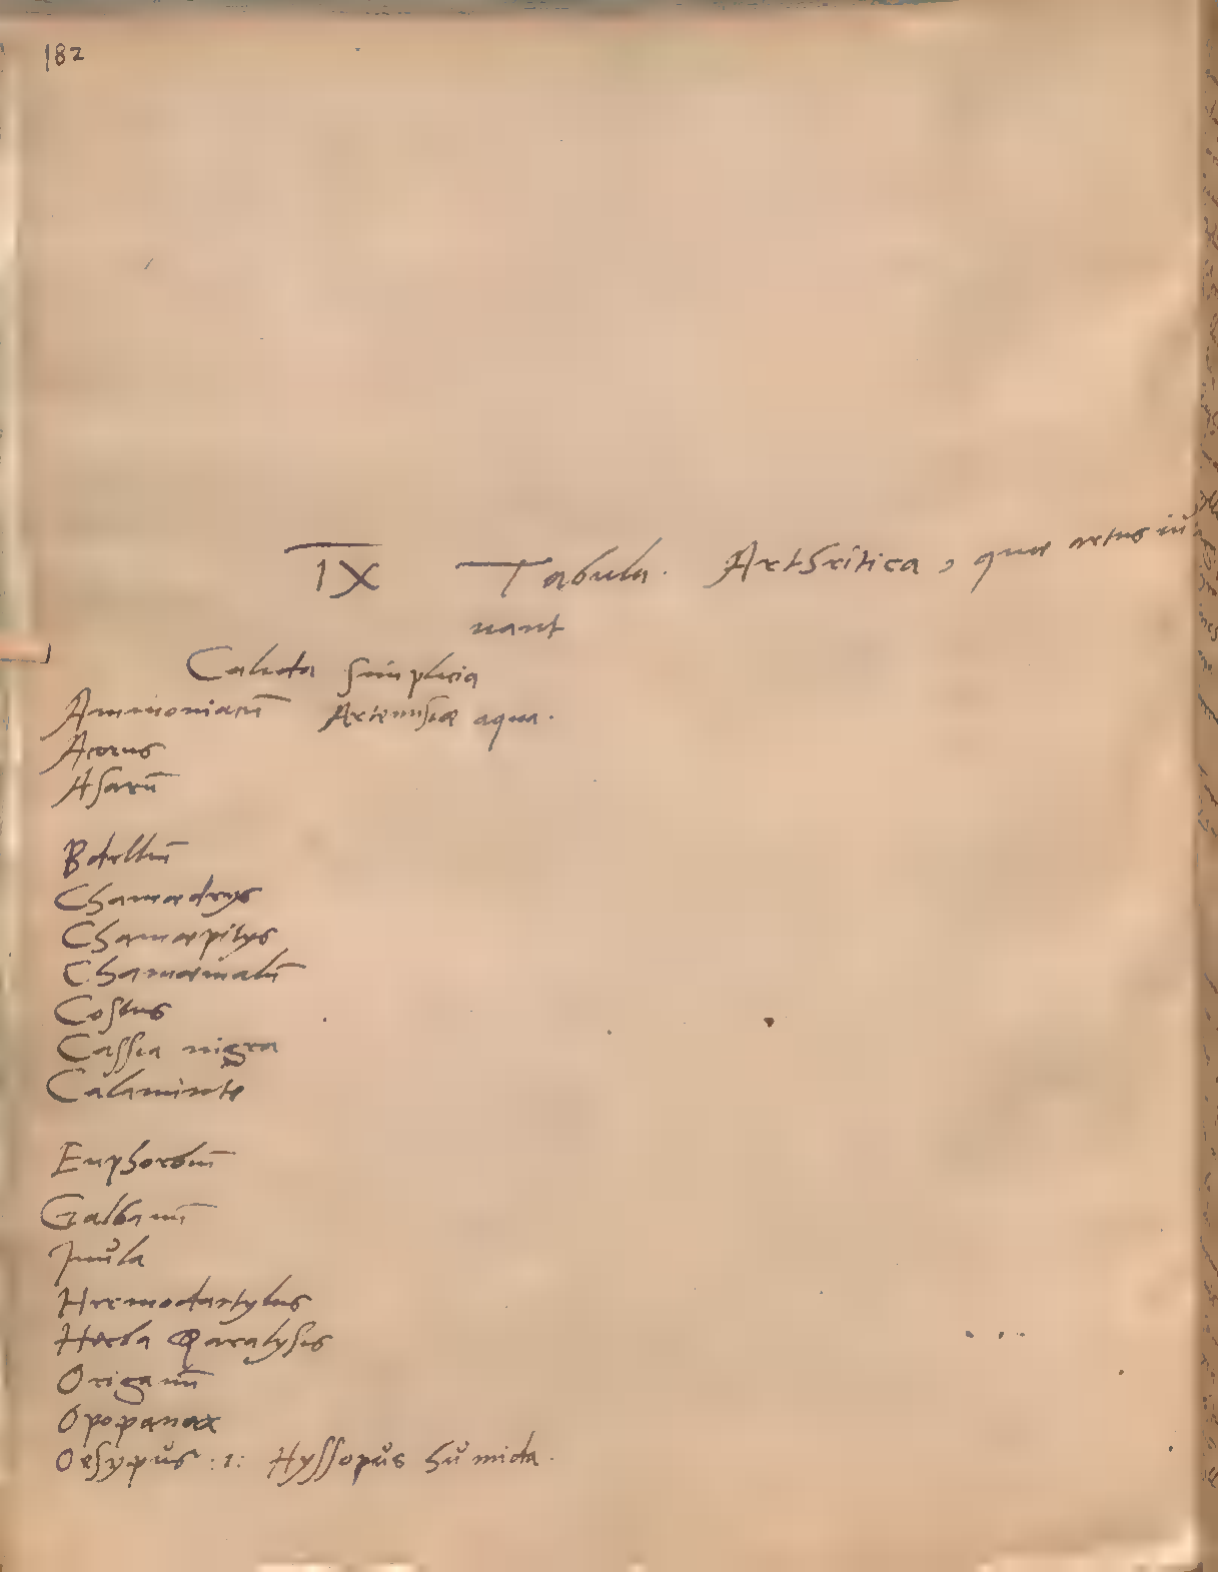 182
IX Tabula. Arthritica, quæ artus iu
uant
Calida simplicia
Ammoniacū Artemisiæ aqua.
Acorus
Asarū
Bdelliū
Chamædrys
Chamæpitys
Chamæmelū
Costus
Cassia nigra
Calaminte
Euphorbiū
Galbanū
Inula
Hermodactylus
Herba Paralysis
Origanū
Opopanax
Oesypus :1: Hyssopus humida.